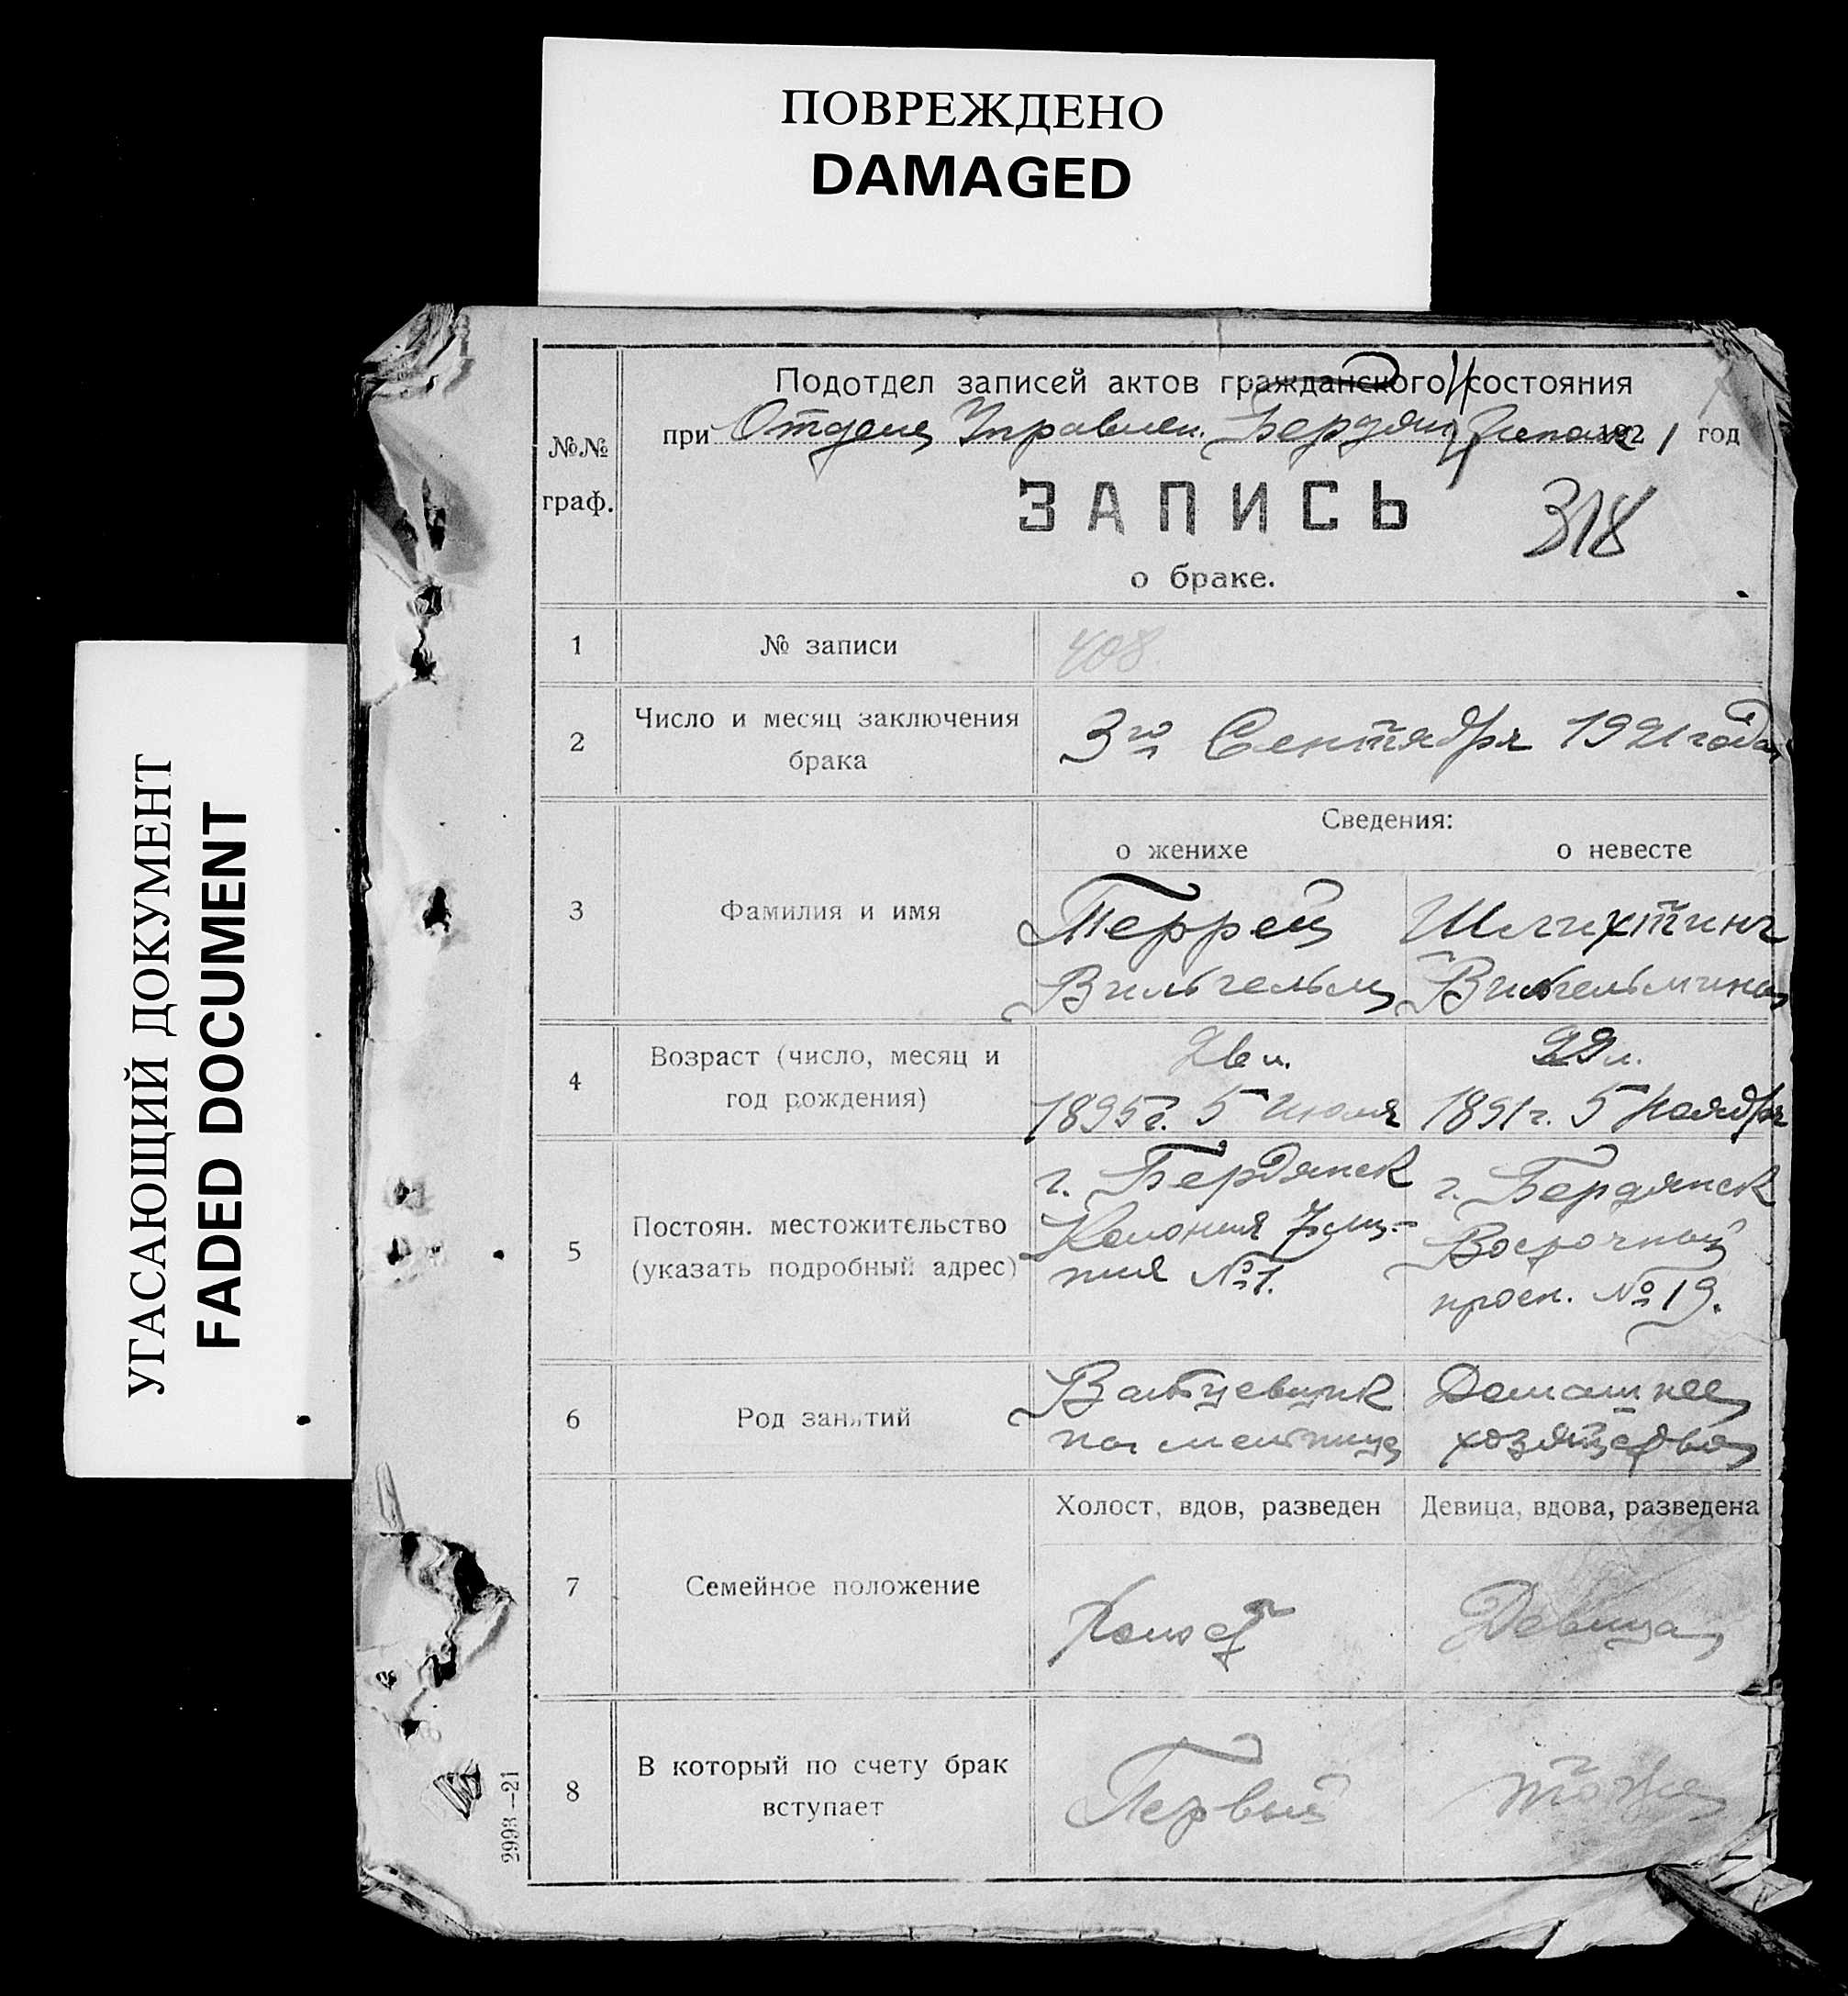 ПОВРЕЖДЕНО
DAMAGED
УГАСАЮЩИЙ ДОКУМЕНТ
FADED DOCUMENT
Подотдел записей актов гражданского состояния
№№ граф.
при Отделе Управлен. Бердян 1921 год
ЗАПИСЬ
318
о браке.
1 № записи 408
2 Число и месяц заключения брака 3го Сентября 1921 года
Сведения:
о женихе о невесте
3 Фамилия и имя
Террей Шлихтинг
Вильгельм Вильгельмина
4 Возраст (число, месяц и год рождения)
26 л. 29 л.
1895 г. 5 Июля 1891 г. 5 Ноября
5 Постоян. местожительство (указать подробный адрес)
г. Бердянск г. Бердянск
Колония Восточный
№ 1. просп. № 19.
6 Род занятий
Вальцевщик Домашнее
на мельнице хозяйство
Холост, вдов, разведен Девица, вдова, разведена
7 Семейное положение
Холост Девица
8 В который по счету брак вступает
Первый тоже
2993—21